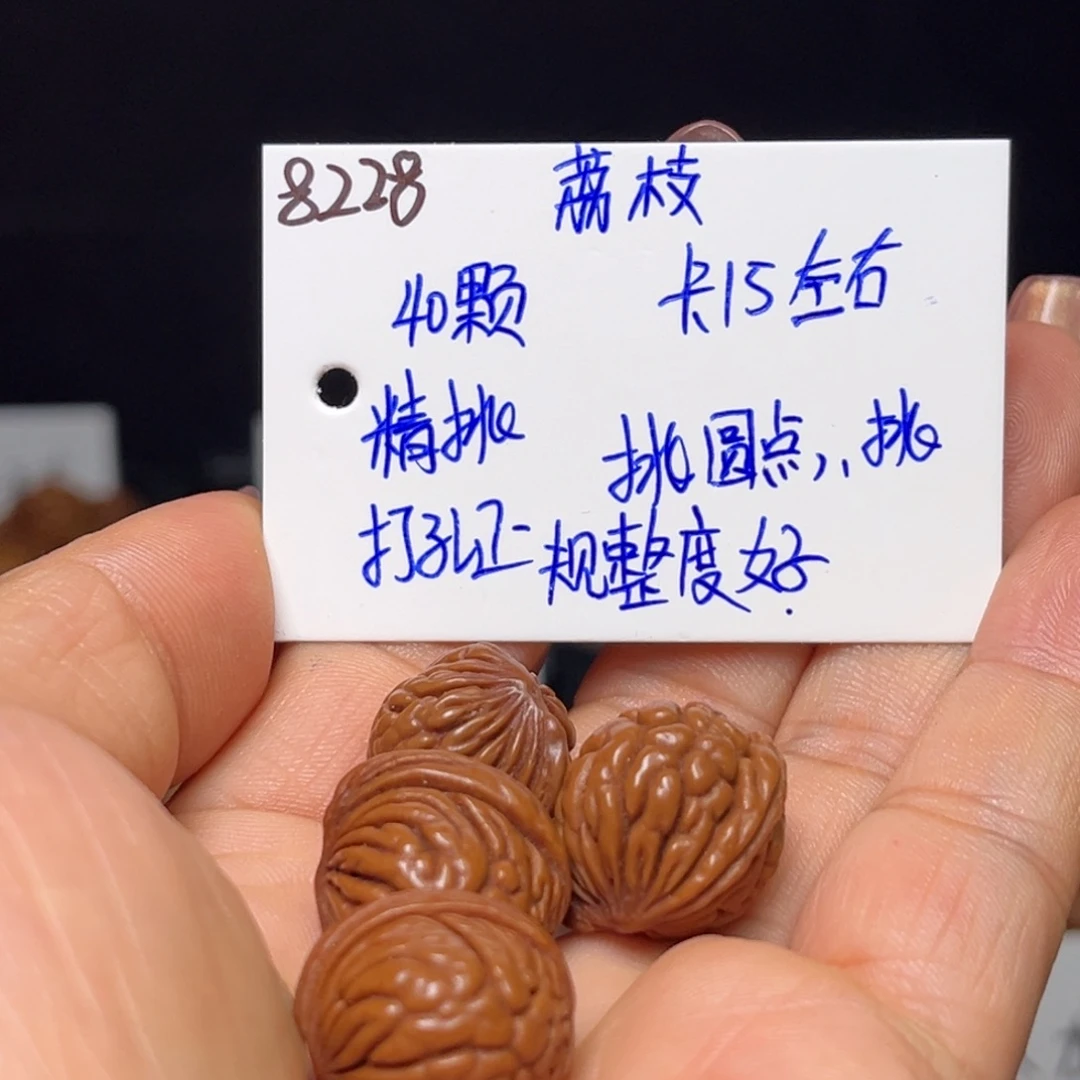 8228 荔枝
40颗 卡15左右
精挑 挑圆点,,挑
打孔正 规整度好.